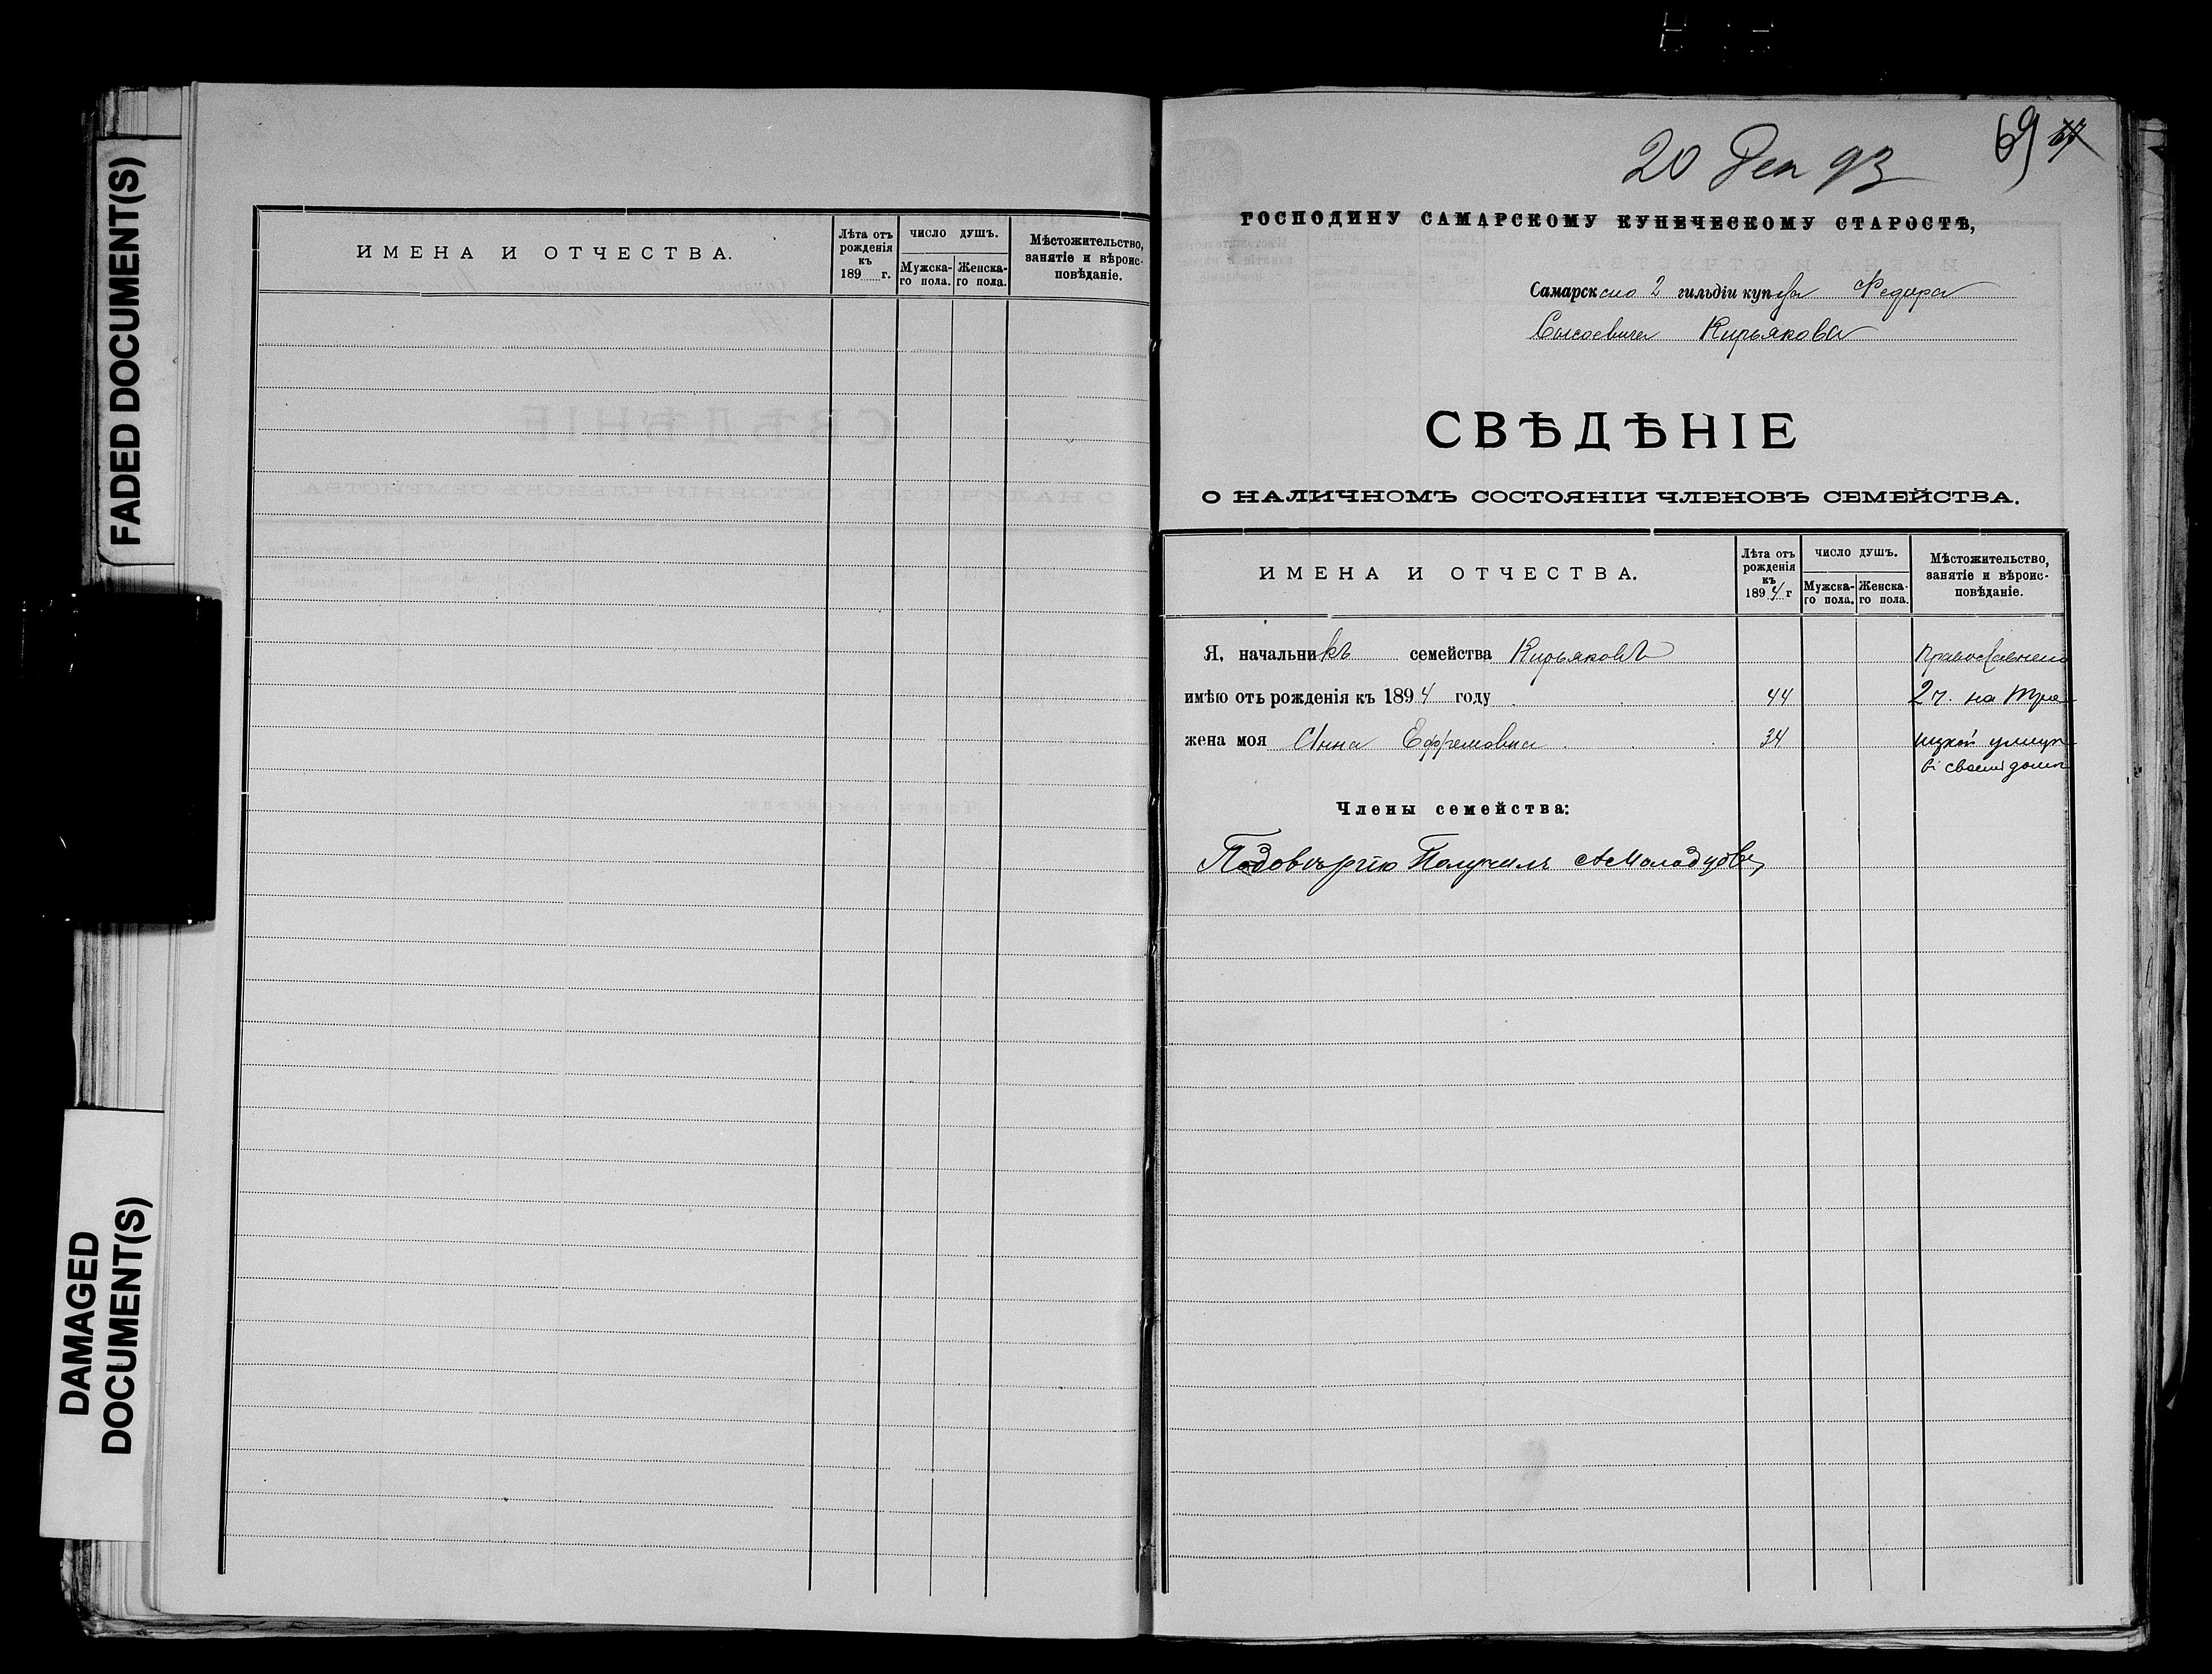 FADED DOCUMENT(S)
DAMAGED
DOCUMENT(S)
ИМЕНА И ОТЧЕСТВА.
Лѣта отъ
рожденія
къ
189 г.
ЧИСЛО ДУШЪ.
Мужска-
го пола.
Женска-
го пола.
Мѣстожительство,
занятіе и вѣроис-
повѣданіе.
69
20 Дек 93
ГОСПОДИНУ САМАРСКОМУ КУПЕЧЕСКОМУ СТАРОСТѢ,
Самарскаго 2 гильдіи купца Федора
Сысоевича Кирьякова
СВѢДѢНІЕ
О НАЛИЧНОМЪ СОСТОЯНІИ ЧЛЕНОВЪ СЕМЕЙСТВА.
ИМЕНА И ОТЧЕСТВА.
Лѣта отъ
рожденія
къ
1894 г
ЧИСЛО ДУШЪ.
Мужска-
го пола.
Женска-
го пола.
Мѣстожительство,
занятіе и вѣроис-
повѣданіе.
Я, начальникъ семейства Кирьяковъ Православнаго
имѣю отъ рожденія къ 1894 году 44 2 ч. на Трое
жена моя Анна Ефремовна 34 ицкой улицѣ
въ своемъ домѣ
Члены семейства:
Подовѣрію Получилъ АМолодцовъ